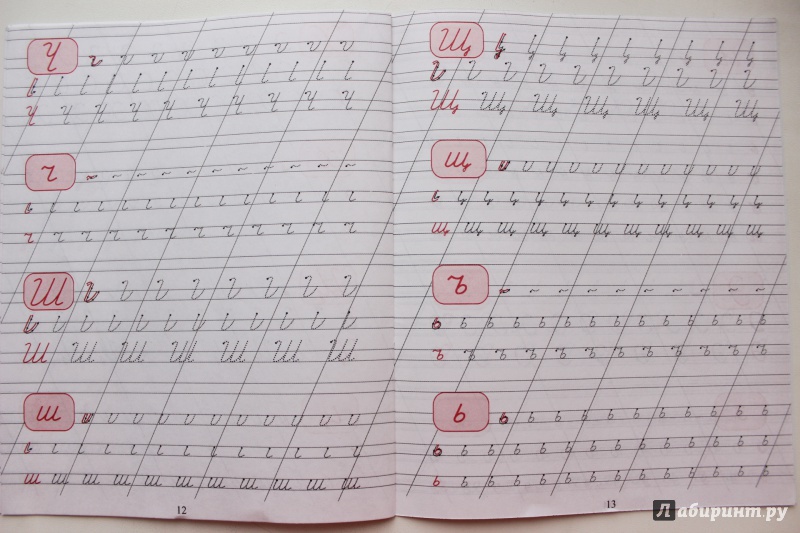 Ч
Ч Ч Ч Ч Ч Ч Ч Ч Ч Ч
ч
ч ч ч ч ч ч ч ч ч ч ч ч
Ш
Ш Ш Ш Ш Ш Ш Ш
ш
ш ш ш ш ш ш ш ш ш ш ш
12
Щ
Щ Щ Щ Щ Щ Щ Щ
щ
щ щ щ щ щ щ щ щ щ щ щ
ъ
ь ь ь ь ь ь ь ь ь ь ь ь ь
ъ ъ ъ ъ ъ ъ ъ ъ ъ ъ ъ ъ
ь
ь ь ь ь ь ь ь ь ь ь ь
ь ь ь ь ь ь ь ь ь ь ь ь ь
ь ь ь ь ь ь ь ь ь ь ь ь ь
13
Лабиринт.ру